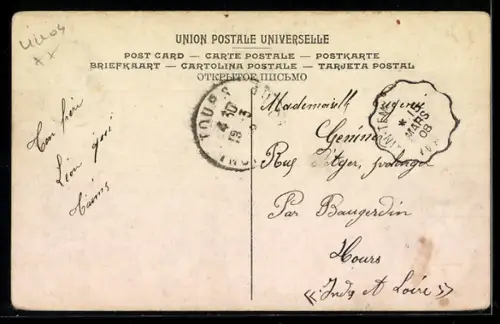 UNION POSTALE UNIVERSELLE
POST CARD – CARTE POSTALE – POSTKARTE
BRIEFKAART – CARTOLINA POSTALE – TARJETA POSTAL
ОТКРЫТОЕ ПИСЬМО
Ton frère
Léon qui
t'aime
TOURS
4 10
18 3
* MARS 08
Mademoiselle Eugénie
Rue
Par Baugerdin
Tours
«Indre et Loire»